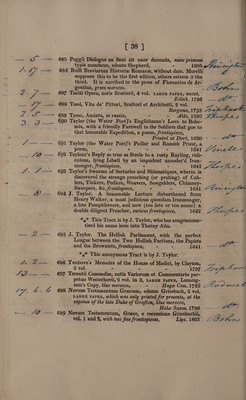 [ 38 ]
- 5 - 685 Poggii Dialogus an Seni sit uxor ducenda, nunc primum
typis mandatus, edente Shepherd, 1805
1.17 - 686 Ruffi Breviarium Historiæ Romanæ, without date. Morelli
supposes this to be the first edition, others esteem it the
third. It is ascribed to the press of Florentius de Ar-
gentina, green morocco.
2.7 - 687 Taciti Opera, notis Brotierii, 4 vol. LARGE PAPER, boards,
Edinb. 1796
- 17 - 688 Tassi, Vite de' Pittori, Scultori et Architetti, 2 vol.
Bergamo, 1793
689 Tasso, Aminta, in russia, Aldo, 1590
3.3 - 690 Taylor (the Water Poet's) Englishman's Love to Bohe-
mia, with a friendly Farewell to the Soldiers that goe to
that honorable Expedition, a poem, frontispiece,
Printed at Dort, 1620
691 Taylor (the Water Poet's) Pedlar and Romish Priest, a
poem, 1641
- 10 - 692 Taylour's Reply as true as Steele to a rusty Rayling, ridi-
culous, lying Libell by an impudent unsoder'd Iron-
monger, frontispiece, 1641
693 Taylor's Swarme of Sectaries and Schismatiques, wherein is
discovered the strange preaching (or prating) of Cob-
lers, Tinkers, Pedlers, Weavers, Sowgelders, Chimney-
Sweepers, &c. frontispiece, 1641
694 J. Taylor. A Seasonable Lecture disburthened from
Henry Walker, a most judicious quondam Ironmonger,
a late Pamphleteere, and now (too late or too soone) a
double diligent Preacher, curious frontispiece, 1642
*** This Tract is by J. Taylor, who has anagramma-
tized his name here into Thorny Ailo.
- 2 - 695 J. Taylor. The Hellish Parliament, with the perfect
League between the Two Hellish Factions, the Papists
and the Brownists, frontispiece, 1641
*** This anonymous Tract is by J. Taylor.
1.2 - 696 Tenhove's Memoirs of the House of Medici, by Clayton,
2 vol. 1797
13 - 697 Terentii Comoediæ, notis Variorum et Commentario per-
petuo Westerhovii, 2 vol. in 3, LARGE PAPER, Lamoig-
non's Copy, blue morocco, Hagæ Com. 1726
17.6.6 698 Novum Testamentum Græcum, edente Griesbach, 2 vol.
LARGE PAPER, which was only printed for presents, at the
expense of the late Duke of Grafton, blue morocco,
Halæ Saxon. 1796
- 10 - 699 Novum Testamentum, Græce, e recensione Griesbachii,
vol. 1 and 2, with two fine frontispieces, Lips. 1803